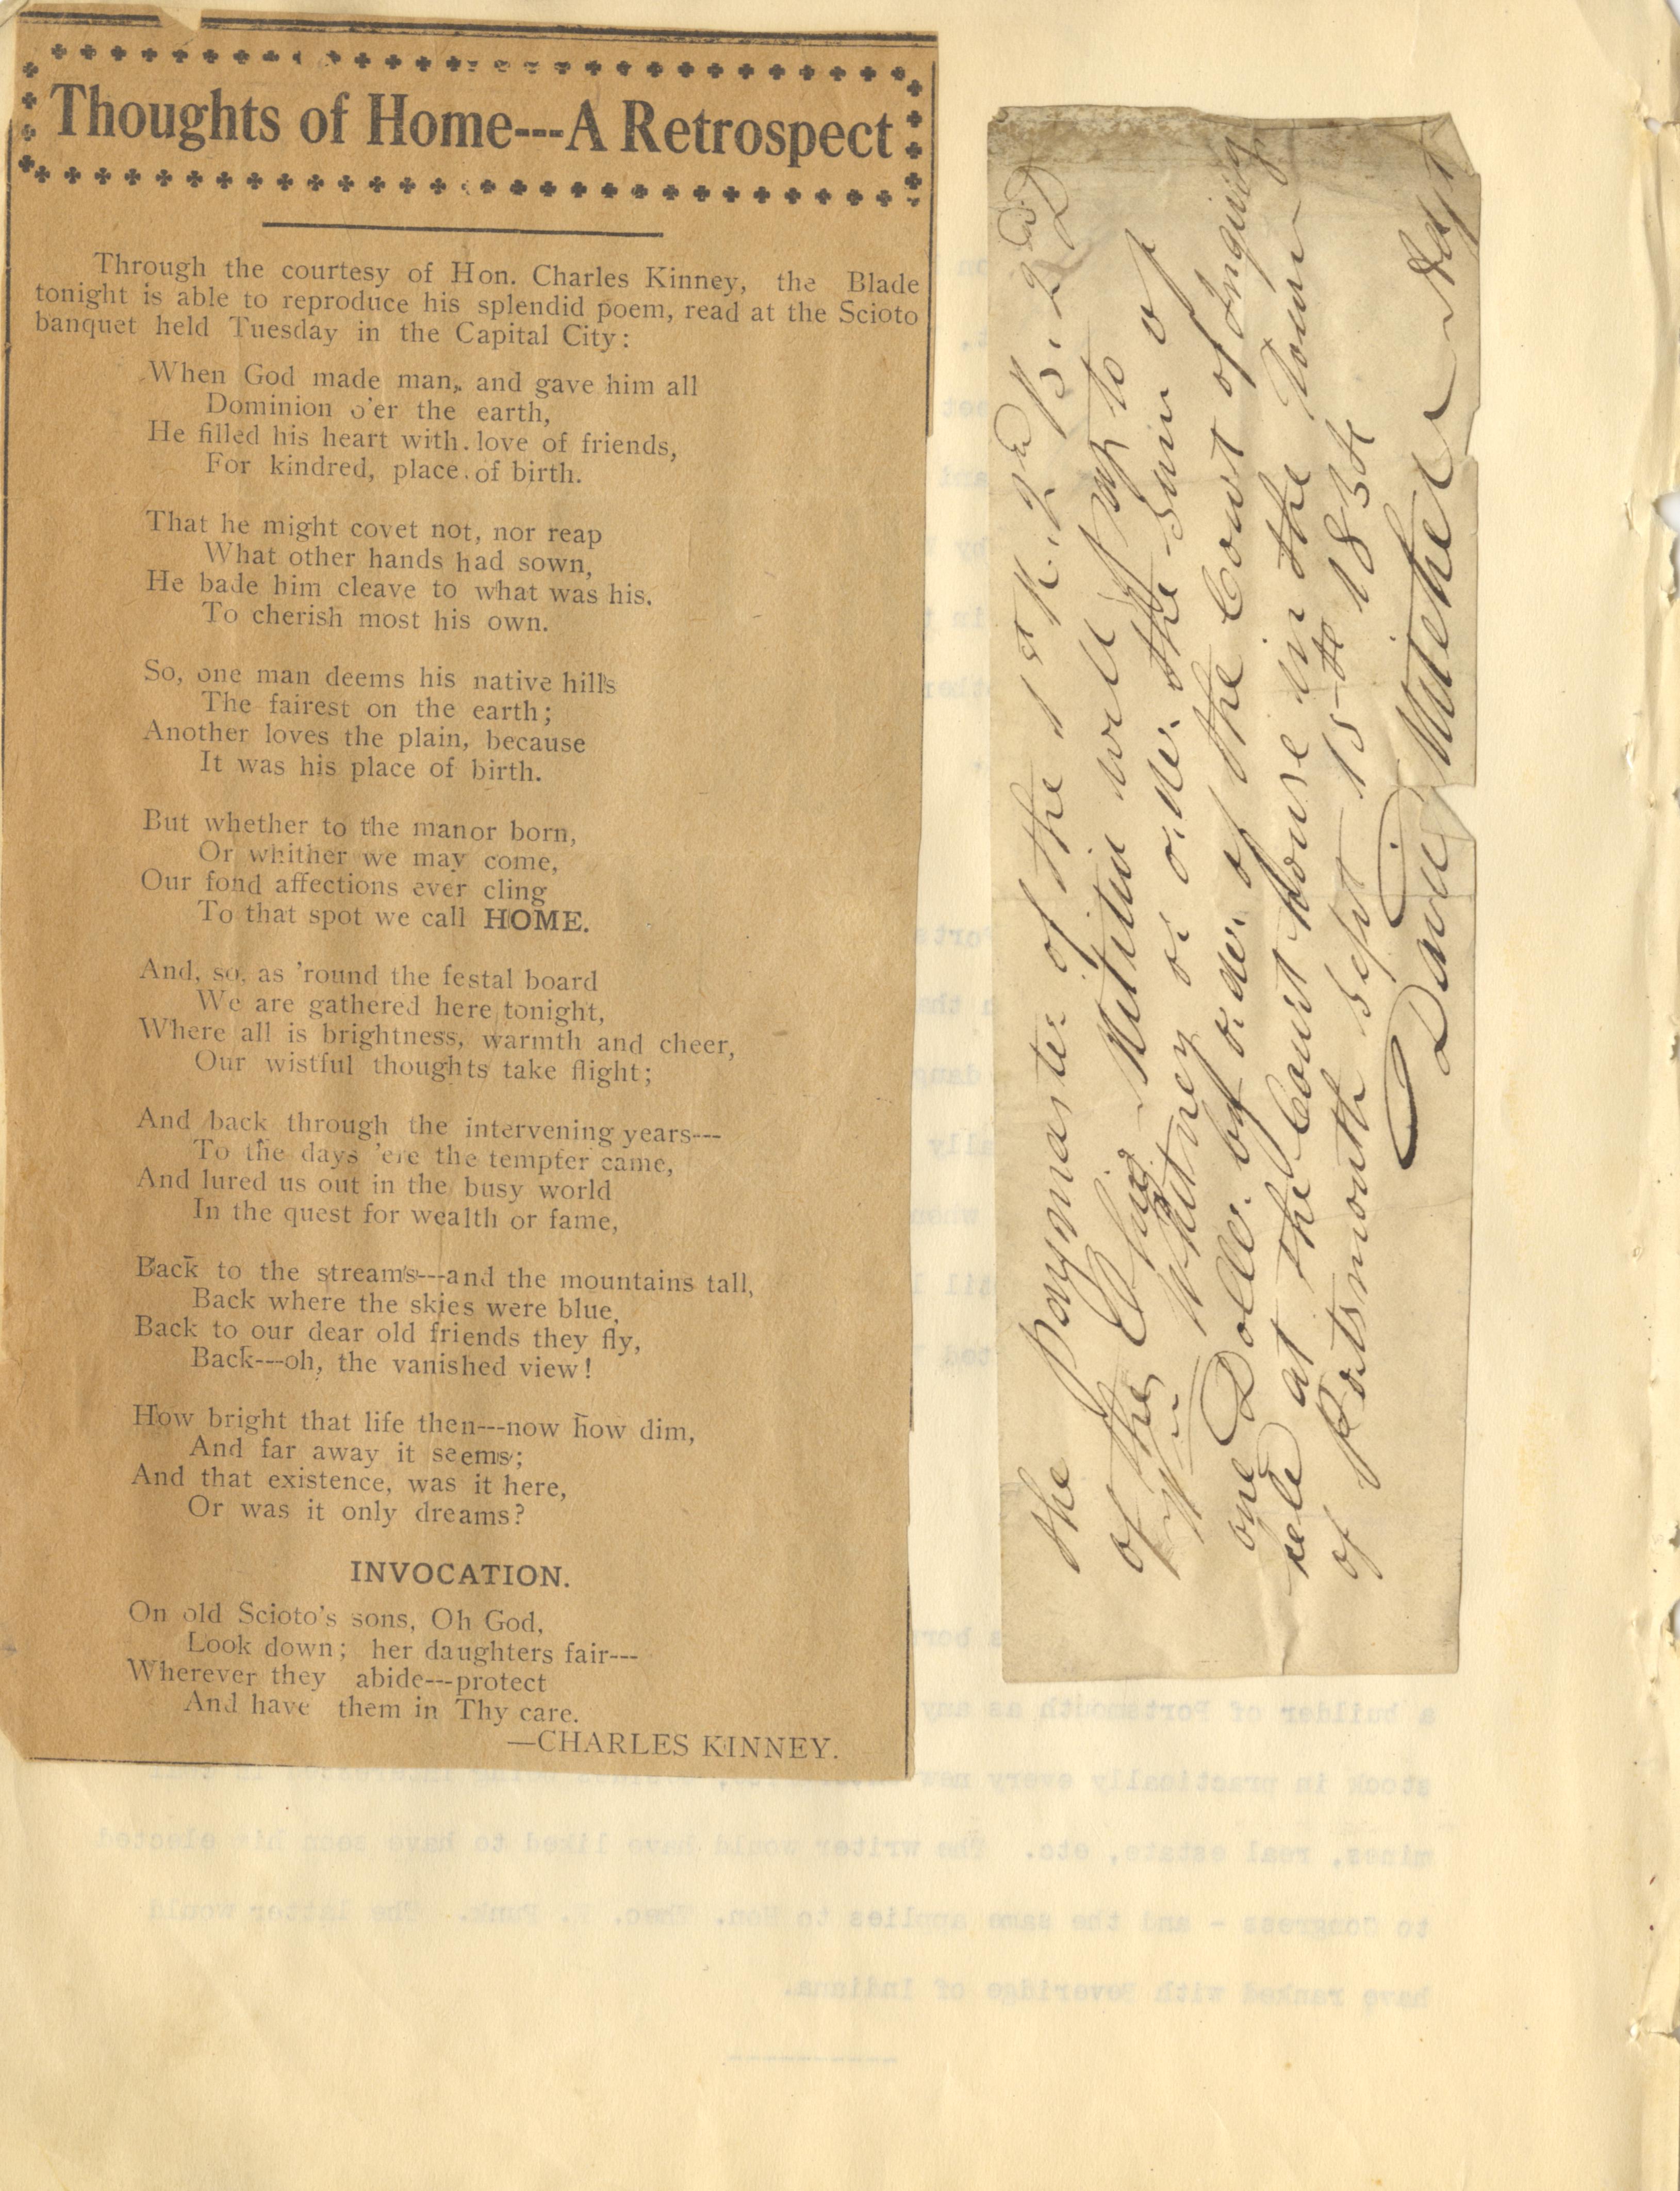 Thoughts of Home---A Retrospect
Through the courtesy of Hon. Charles Kinney, the Blade
tonight is able to reproduce his splendid poem, read at the Scioto
banquet held Tuesday in the Capital City:
When God made man, and gave him all
Dominion o'er the earth,
He filled his heart with love of friends,
For kindred, place of birth.
That he might covet not, nor reap
What other hands had sown,
He bade him cleave to what was his.
To cherish most his own.
So, one man deems his native hills
The fairest on the earth;
Another loves the plain, because
It was his place of birth.
But whether to the manor born,
Or whither we may come,
Our fond affections ever cling
To that spot we call HOME.
And, so, as 'round the festal board
We are gathered here tonight,
Where all is brightness, warmth and cheer,
Our wistful thoughts take flight;
And back through the intervening years---
To the days 'ere the tempter came,
And lured us out in the busy world
In the quest for wealth or fame,
Back to the streams---and the mountains tall,
Back where the skies were blue,
Back to our dear old friends they fly,
Back---oh, the vanished view!
How bright that life then---now how dim,
And far away it seems;
And that existence, was it here,
Or was it only dreams?
INVOCATION.
On old Scioto's sons, Oh God,
Look down; her daughters fair---
Wherever they abide---protect
And have them in Thy care.
—CHARLES KINNEY.
the Paymaster of the 1st R. 2nd B. 2d D
of the Ohio Militia will pay to
Whitney or order the sum of
one Doller by order of the Court of Inquiry
held at the Court house in the Town
of Portsmouth Sept 15th 1834
David Mitchel Adjt
a builder of Portsmouth as any
stock in practically every new
mines, real estate, etc. The writer would have liked to have seen him elected
to Congress - and the same applies to Hon. Theo. K. Funk. The latter would
have ranked with Beveridge of Indiana.